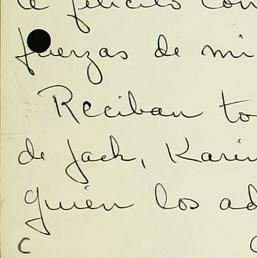 te felicito con
fuerzas de mi
Reciban to
de Jack, Karin
quien los ad